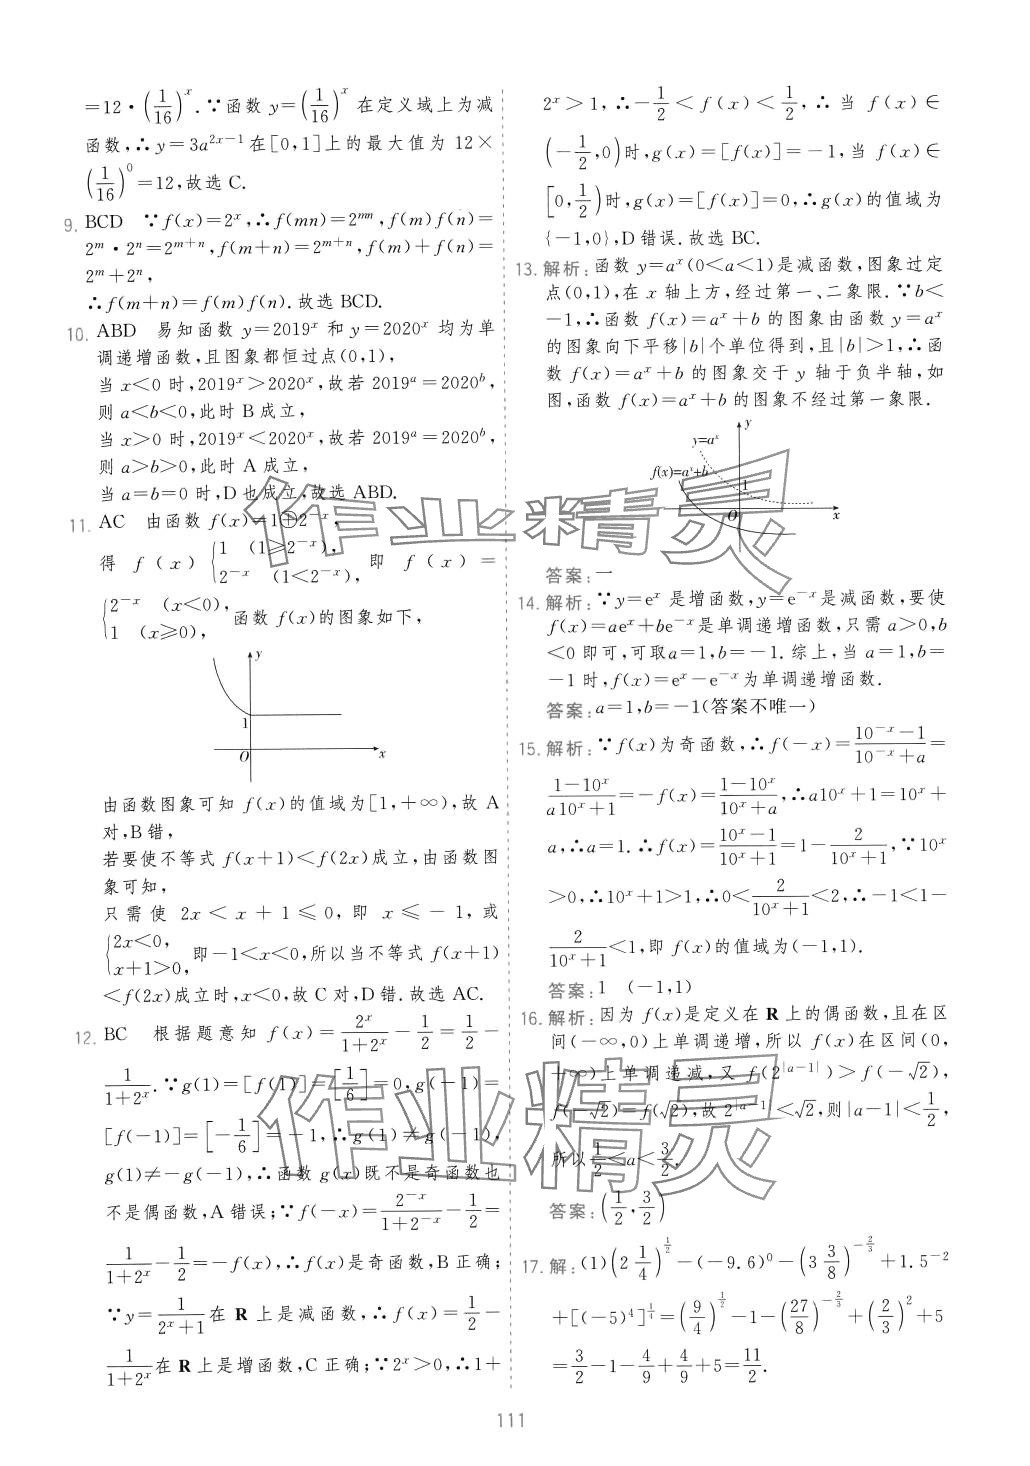 =12·(1/16)^x.∵函数 y=(1/16)^x 在定义域上为减
函数,∴y=3a^{2x-1}在[0,1]上的最大值为 12×
(1/16)^0=12,故选 C.
9. BCD ∵f(x)=2^x,∴f(mn)=2^{mn},f(m)f(n)=
2^m·2^n=2^{m+n},f(m+n)=2^{m+n},f(m)+f(n)=
2^m+2^n,
∴f(m+n)=f(m)f(n).故选 BCD.
10. ABD 易知函数 y=2019^x 和 y=2020^x 均为单
调递增函数,且图象都恒过点(0,1),
当 x<0 时,2019^x>2020^x,故若 2019^a=2020^b,
则 a<b<0,此时 B 成立,
当 x>0 时,2019^x<2020^x,故若 2019^a=2020^b,
则 a>b>0,此时 A 成立,
当 a=b=0 时,D 也成立,故选 ABD.
11. AC 由函数 f(x)=1⊕2^{-x},
得 f(x) {1 (1≥2^{-x}), 2^{-x} (1<2^{-x}), 即 f(x)=
{2^{-x} (x<0), 1 (x≥0), 函数 f(x)的图象如下,
y
1
O
x
由函数图象可知 f(x)的值域为[1,+∞),故 A
对,B 错,
若要使不等式 f(x+1)<f(2x)成立,由函数图
象可知,
只需使 2x<x+1≤0,即 x≤-1,或
{2x<0, x+1>0, 即-1<x<0,所以当不等式 f(x+1)
<f(2x)成立时,x<0,故 C 对,D 错.故选 AC.
12. BC 根据题意知 f(x)=2^x/(1+2^x)-1/2=1/2-
1/(1+2^x).∵g(1)=[f(1)]=[1/6]=0,g(-1)=
[f(-1)]=[-1/6]=-1,∴g(1)≠g(-1),
g(1)≠-g(-1),∴函数 g(x)既不是奇函数也
不是偶函数,A 错误;∵f(-x)=2^{-x}/(1+2^{-x})-1/2=
1/(1+2^x)-1/2=-f(x),∴f(x)是奇函数,B 正确;
∵y=1/(2^x+1)在 R 上是减函数,∴f(x)=1/2-
1/(1+2^x)在 R 上是增函数,C 正确;∵2^x>0,∴1+
2^x>1,∴-1/2<f(x)<1/2,∴当 f(x)∈
(-1/2,0)时,g(x)=[f(x)]=-1,当 f(x)∈
[0,1/2)时,g(x)=[f(x)]=0,∴g(x)的值域为
{-1,0},D 错误.故选 BC.
13. 解析:函数 y=a^x(0<a<1)是减函数,图象过定
点(0,1),在 x 轴上方,经过第一、二象限.∵b<
-1,∴函数 f(x)=a^x+b 的图象由函数 y=a^x
的图象向下平移|b|个单位得到,且|b|>1,∴函
数 f(x)=a^x+b 的图象交于 y 轴于负半轴,如
图,函数 f(x)=a^x+b 的图象不经过第一象限.
y
y=a^x
f(x)=a^x+b
1
O
x
答案:一
14. 解析:∵y=e^x 是增函数,y=e^{-x}是减函数,要使
f(x)=ae^x+be^{-x}是单调递增函数,只需 a>0,b
<0 即可,可取a=1,b=-1.综上,当 a=1,b=
-1 时,f(x)=e^x-e^{-x}为单调递增函数.
答案:a=1,b=-1(答案不唯一)
15. 解析:∵f(x)为奇函数,∴f(-x)=(10^{-x}-1)/(10^{-x}+a)=
(1-10^x)/(a10^x+1)=-f(x)=(1-10^x)/(10^x+a),∴a10^x+1=10^x+
a,∴a=1.∴f(x)=(10^x-1)/(10^x+1)=1-2/(10^x+1),∵10^x
>0,∴10^x+1>1,∴0<2/(10^x+1)<2,∴-1<1-
2/(10^x+1)<1,即 f(x)的值域为(-1,1).
答案:1 (-1,1)
16. 解析:因为 f(x)是定义在 R 上的偶函数,且在区
间(-∞,0)上单调递增,所以 f(x)在区间(0,
+∞)上单调递减,又 f(2^{|a-1|})>f(-√2),
f(-√2)=f(√2),故 2^{|a-1|}<√2,则|a-1|<1/2,
所以1/2<a<3/2.
答案:(1/2,3/2)
17. 解:(1)(2 1/4)^{1/2}-(-9.6)^0-(3 3/8)^{-2/3}+1.5^{-2}
+[(-5)^4]^{1/4}=(9/4)^{1/2}-1-(27/8)^{-2/3}+(2/3)^2+5
=3/2-1-4/9+4/9+5=11/2.
111
作业精灵
作业精灵